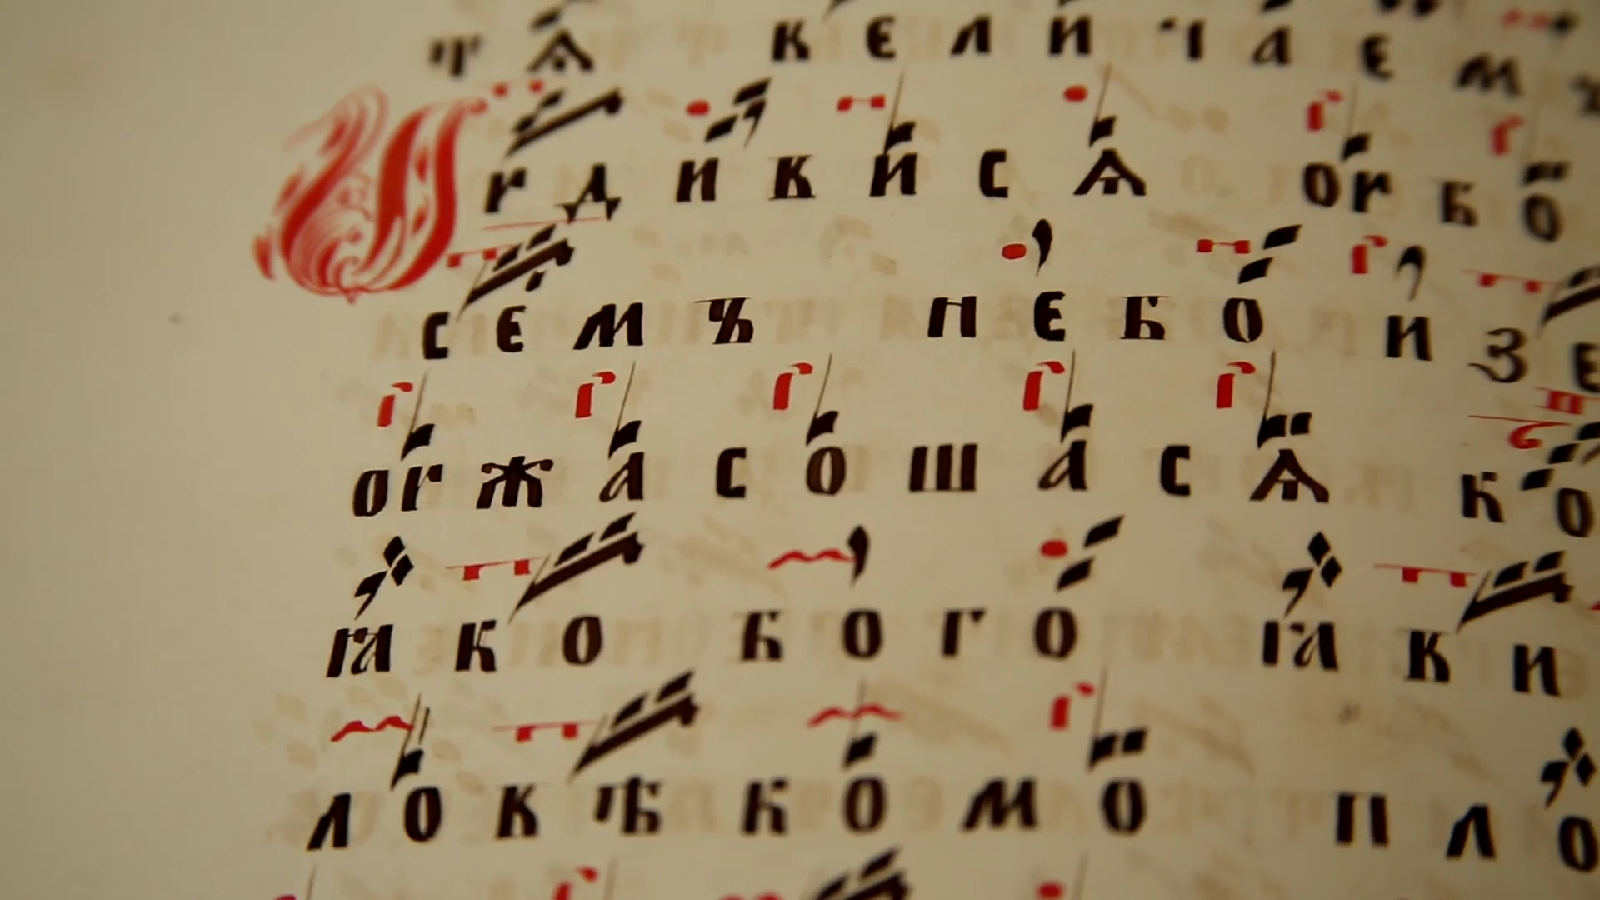 тѧ величаемъ
Оудивисѧ оубо
семъ небо и зе
оужасошасѧ ко
ꙗко бого ꙗви
ловѣкомо пло